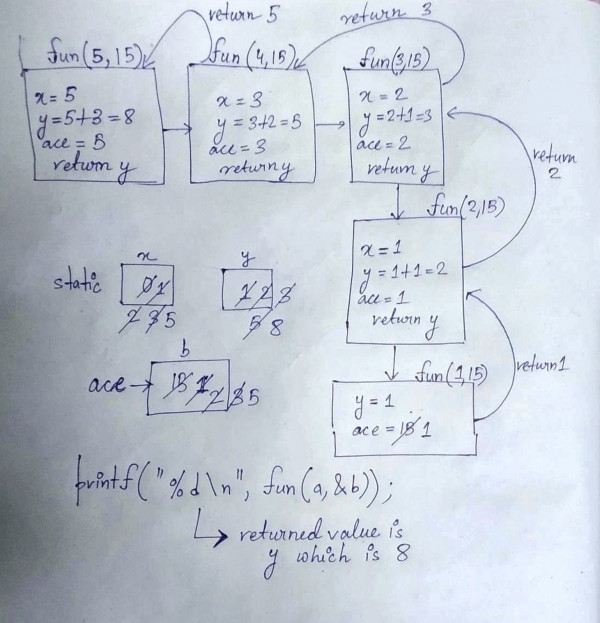 return 5
return 3
fun(5,15)
fun(4,15)
fun(3,15)
x=5
y=5+3=8
ace=5
return y
x=3
y=3+2=5
ace=3
return y
x=2
y=2+1=3
ace=2
return y
return
2
fun(2,15)
x=1
y=1+1=2
ace=1
return y
return 1
fun(1,15)
y=1
ace=15 1
static
x
0 1
2 3 5
y
1 2 3
5 8
b
ace→
15 1 2 3 5
printf("%d\n", fun(a,&b));
returned value is
y which is 8